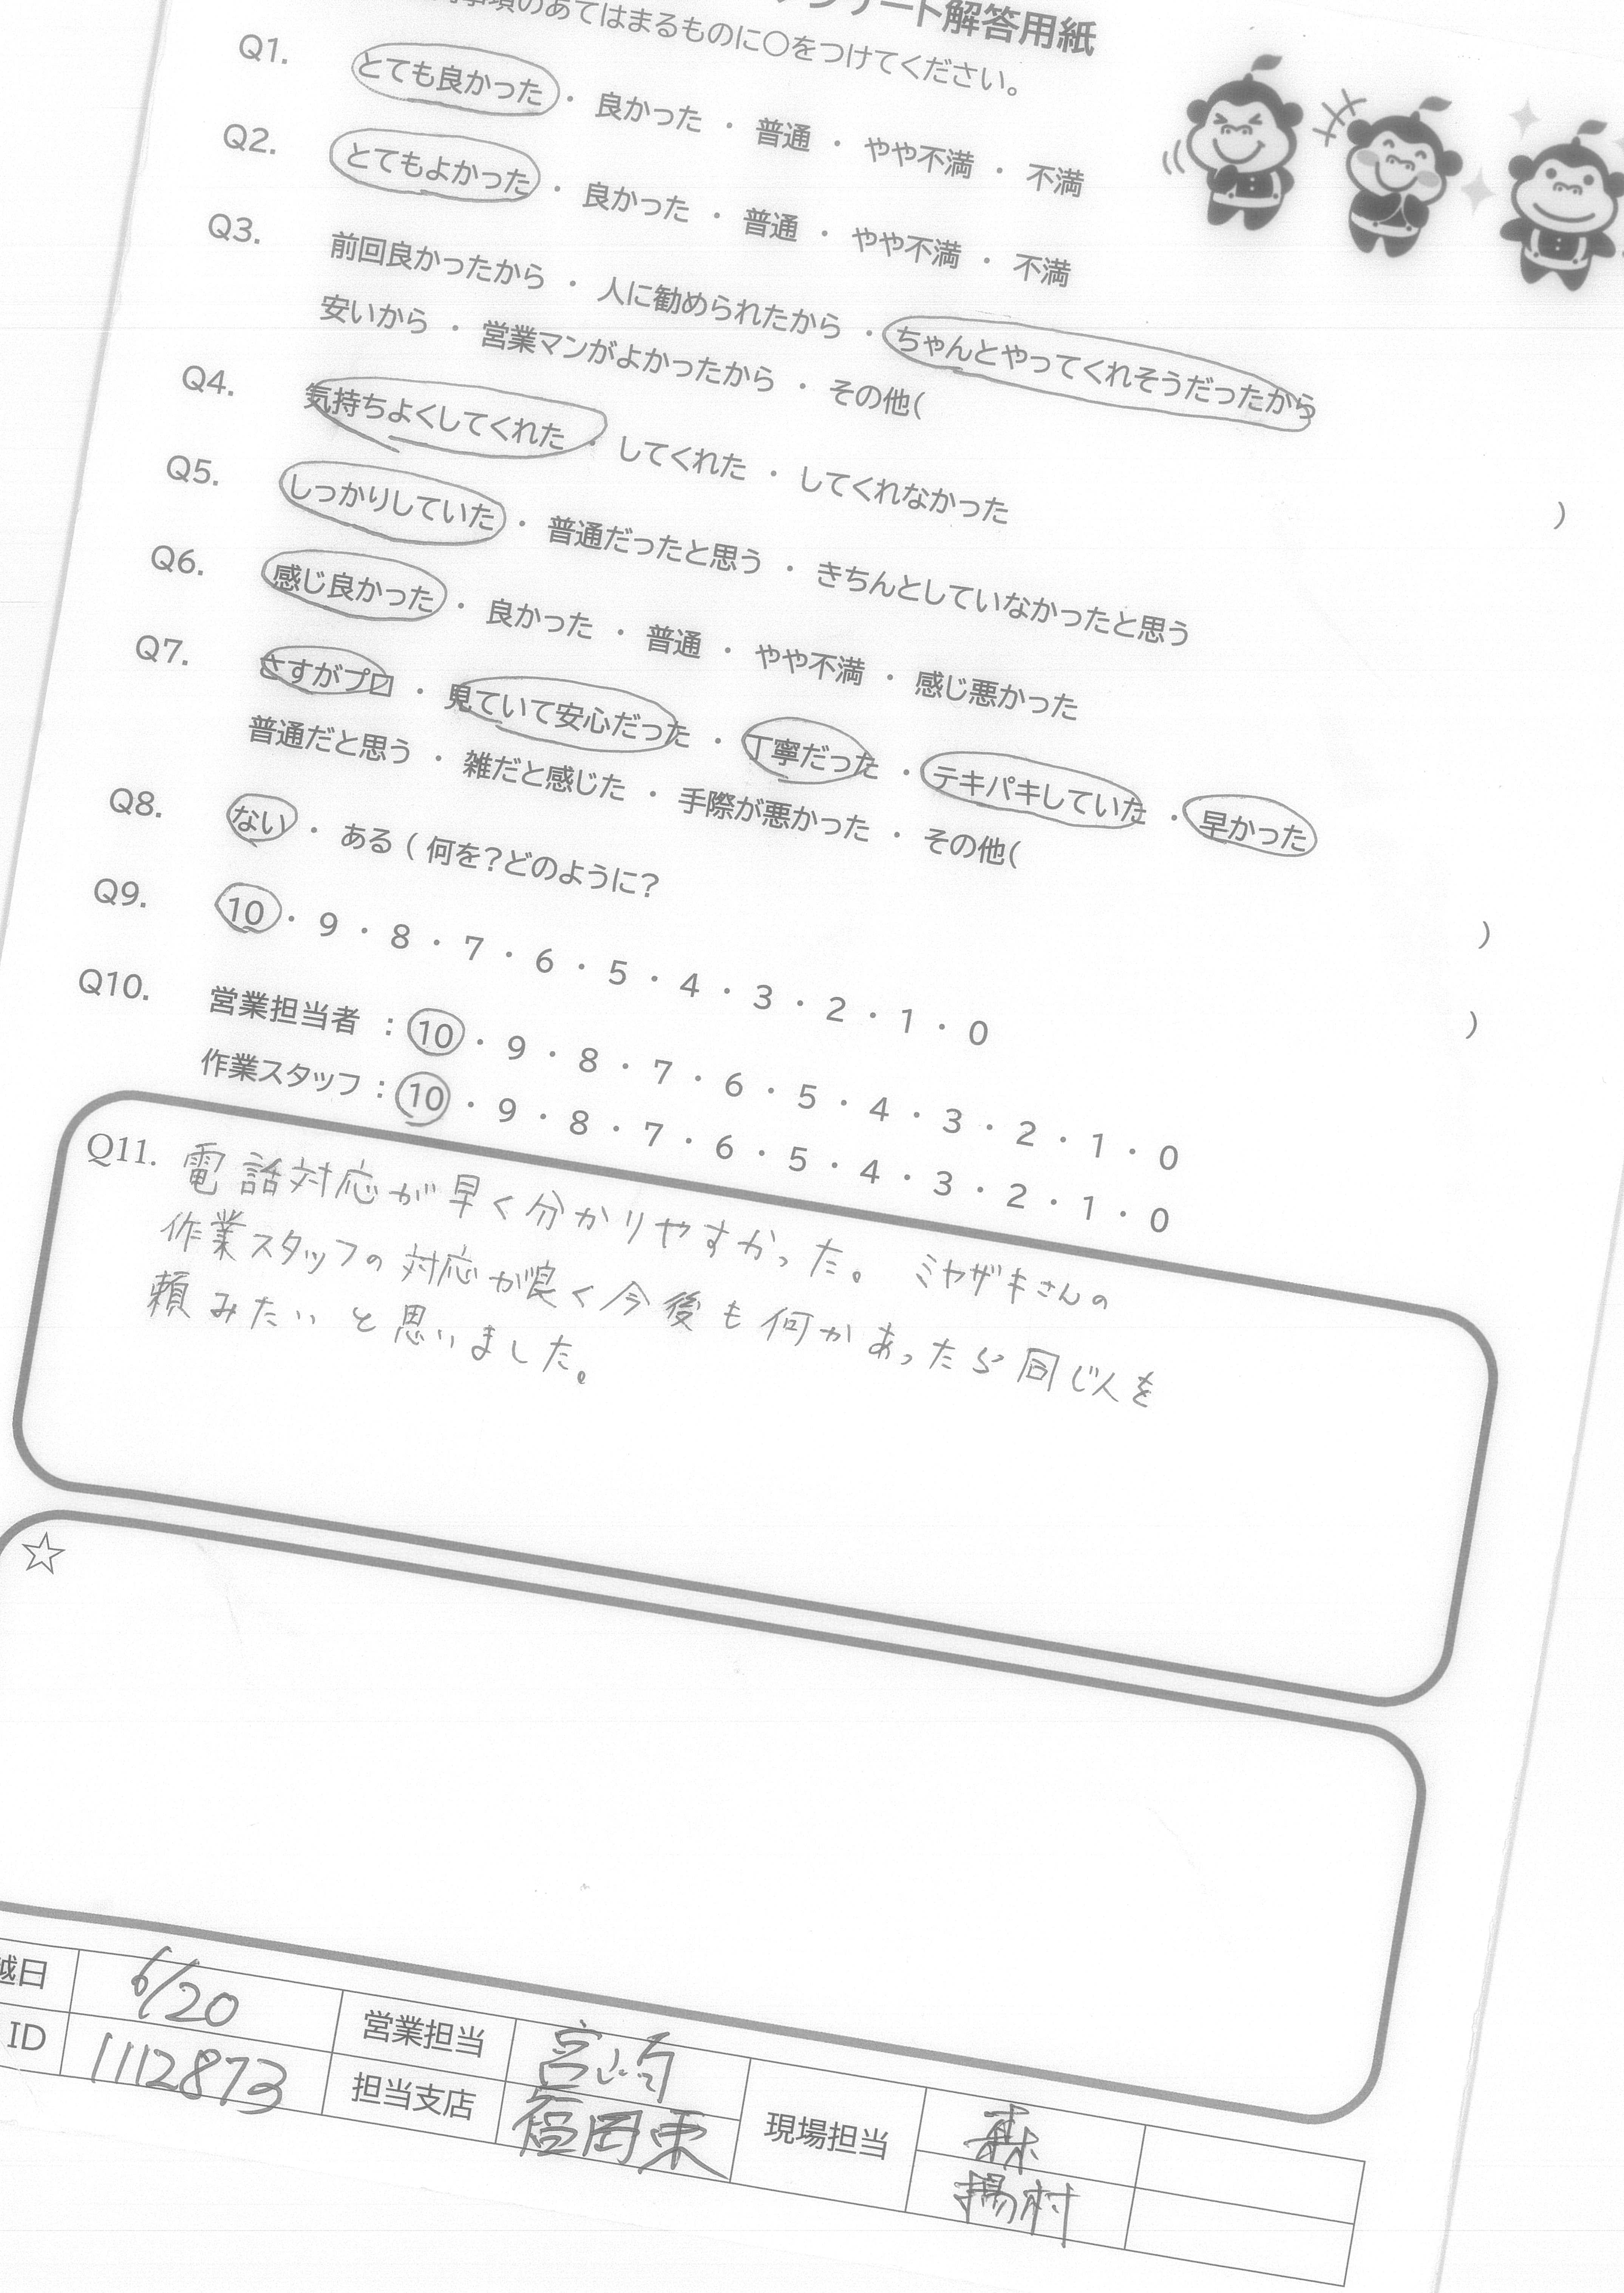 ート解答用紙
事項のあてはまるものに○をつけてください。
Q1. とても良かった ・ 良かった ・ 普通 ・ やや不満 ・ 不満
Q2. とてもよかった ・ 良かった ・ 普通 ・ やや不満 ・ 不満
Q3. 前回良かったから ・ 人に勧められたから ・ ちゃんとやってくれそうだったから
安いから ・ 営業マンがよかったから ・ その他( )
Q4. 気持ちよくしてくれた ・ してくれた ・ してくれなかった
Q5. しっかりしていた ・ 普通だったと思う ・ きちんとしていなかったと思う
Q6. 感じ良かった ・ 良かった ・ 普通 ・ やや不満 ・ 感じ悪かった
Q7. さすがプロ ・ 見ていて安心だった ・ 丁寧だった ・ テキパキしていた ・ 早かった
普通だと思う ・ 雑だと感じた ・ 手際が悪かった ・ その他( )
Q8. ない ・ ある ( 何を?どのように? )
Q9. 10 ・ 9 ・ 8 ・ 7 ・ 6 ・ 5 ・ 4 ・ 3 ・ 2 ・ 1 ・ 0
Q10. 営業担当者 : 10 ・ 9 ・ 8 ・ 7 ・ 6 ・ 5 ・ 4 ・ 3 ・ 2 ・ 1 ・ 0
作業スタッフ : 10 ・ 9 ・ 8 ・ 7 ・ 6 ・ 5 ・ 4 ・ 3 ・ 2 ・ 1 ・ 0
Q11. 電話対応が早く分かりやすかった。 ミヤザキさんの
作業スタッフの対応が良く今後も何かあったら同じ人を
頼みたいと思いました。
☆
越日 6/20 営業担当 宮崎 現場担当 森
ID 1112873 担当支店 福岡東 楊村